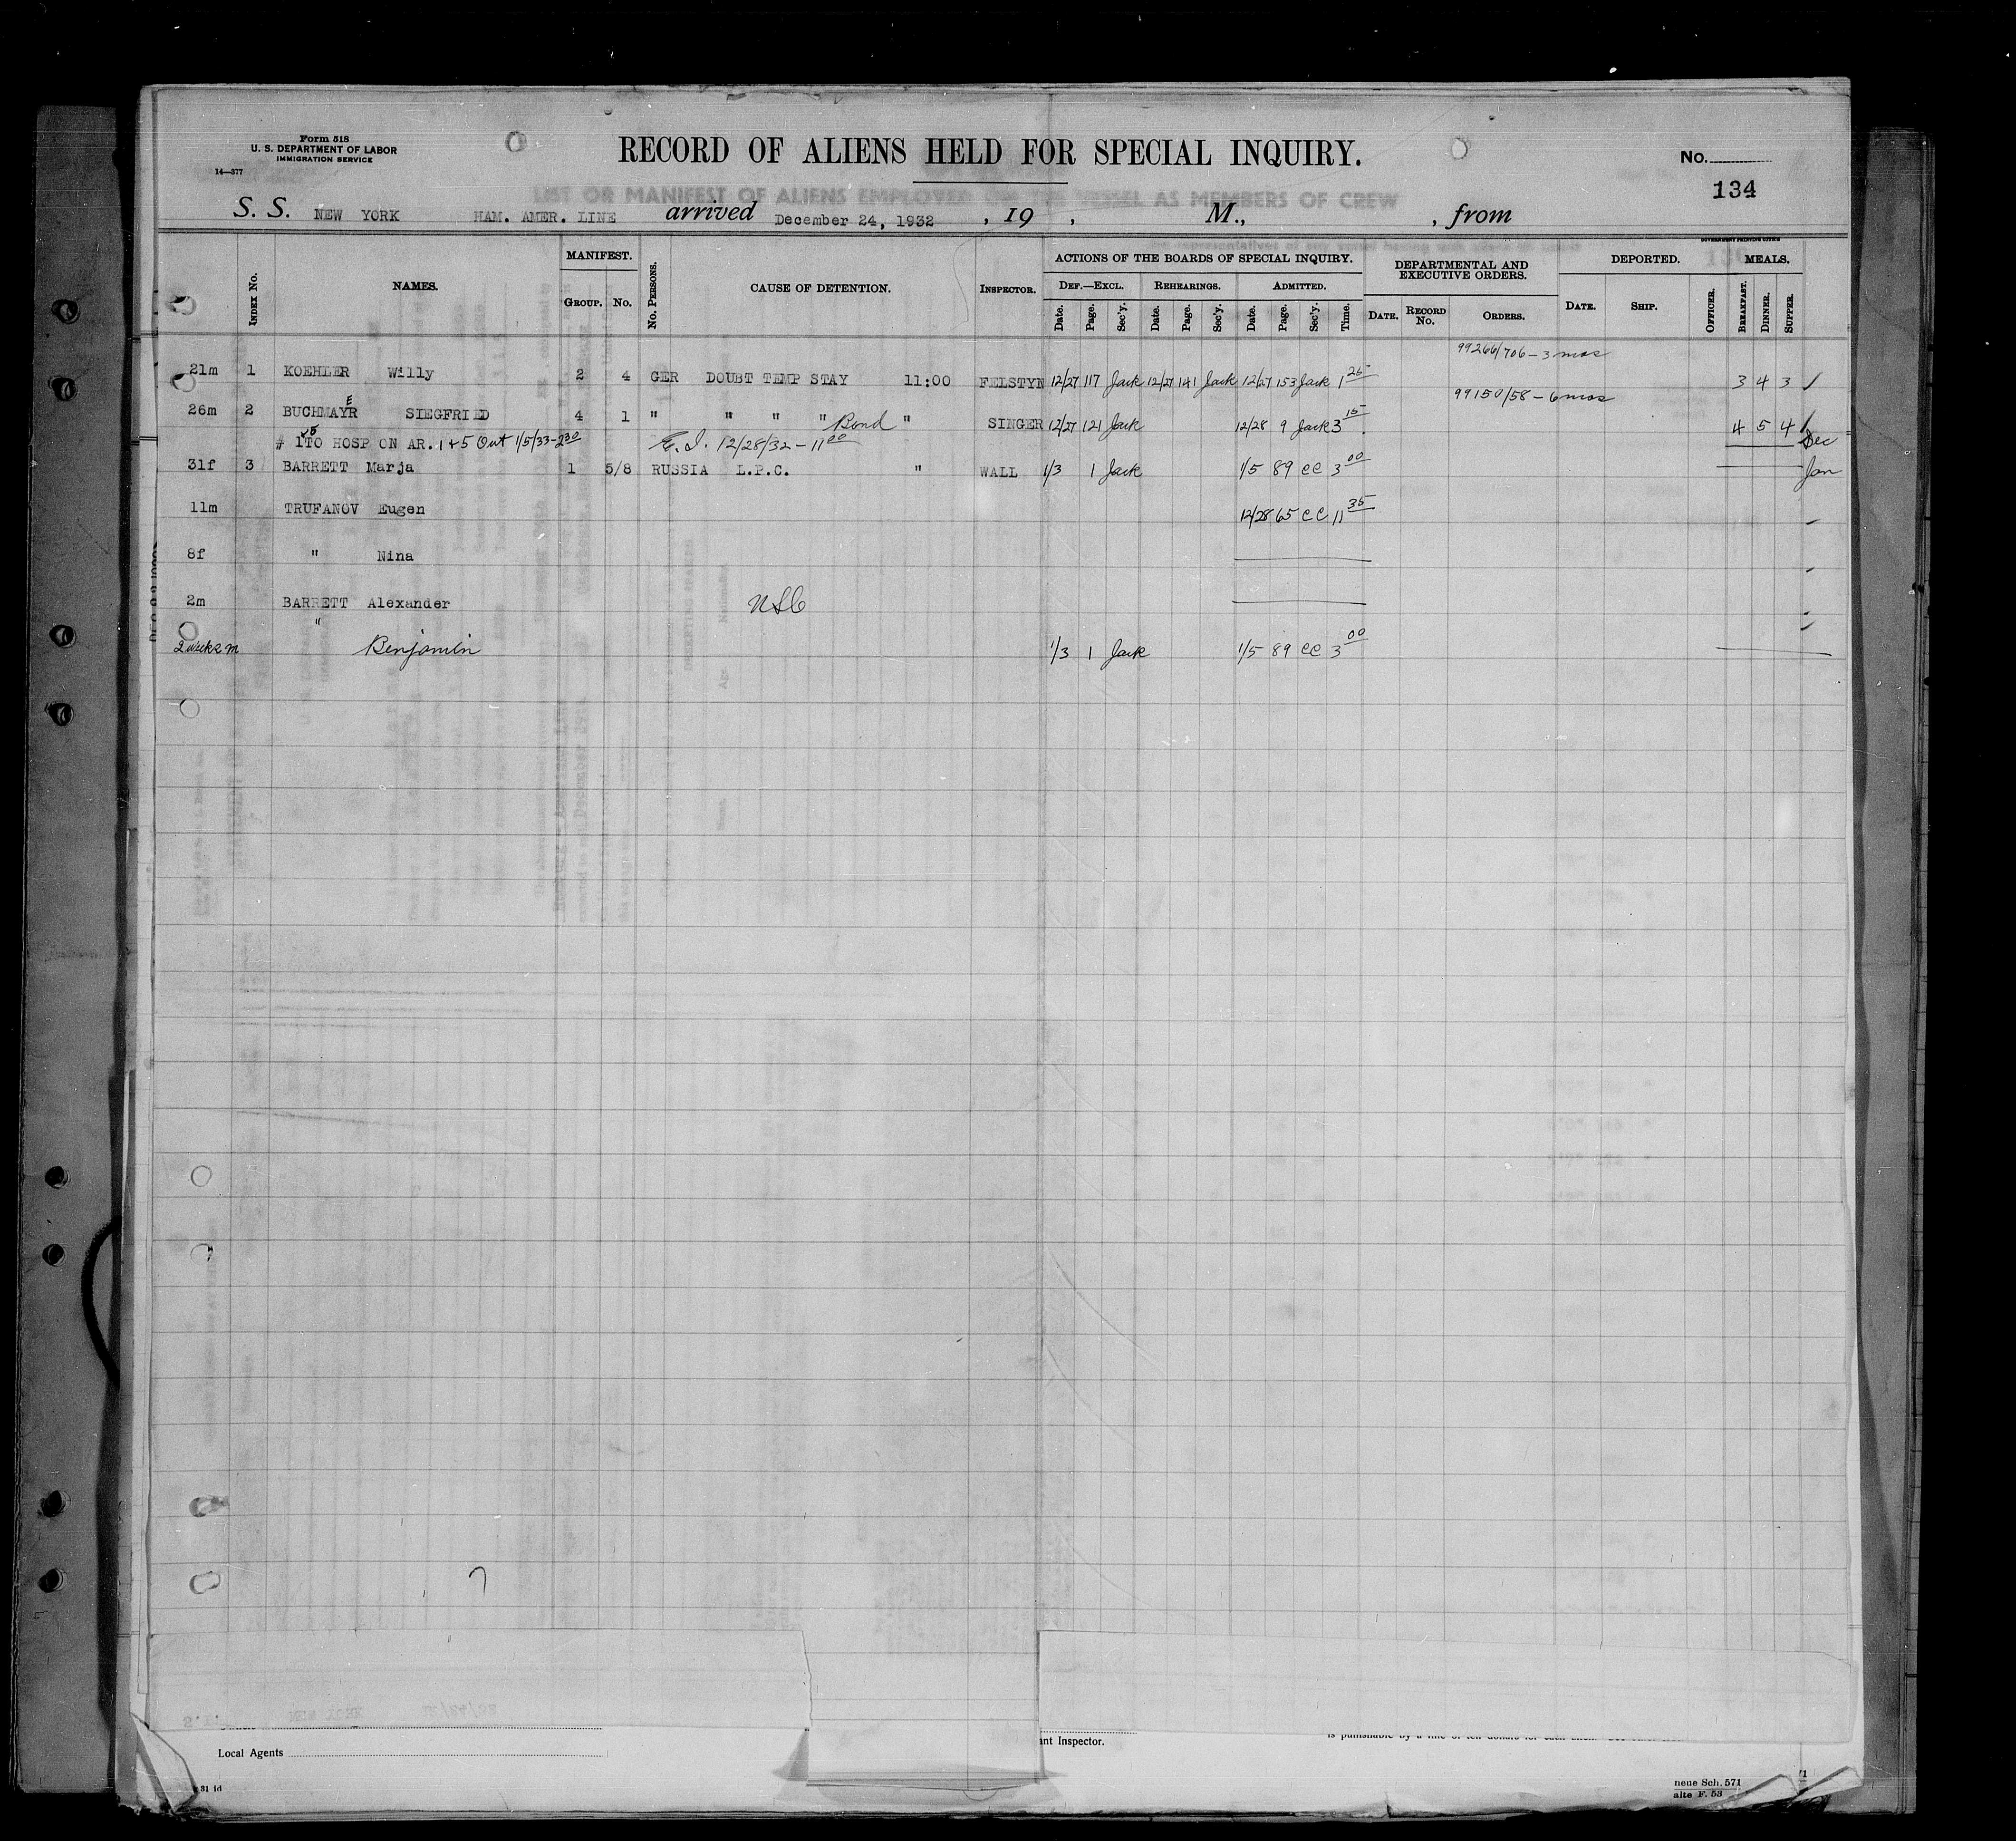 Form 518
U. S. DEPARTMENT OF LABOR
IMMIGRATION SERVICE
14—377
RECORD OF ALIENS HELD FOR SPECIAL INQUIRY.
No.
134
LIST OR MANIFEST OF ALIENS EMPLOYED ON THE VESSEL AS MEMBERS OF CREW
S. S. NEW YORK HAM. AMER. LINE arrived December 24, 1932 , 19 , M., , from
GOVERNMENT PRINTING OFFICE
INDEX NO. NAMES. MANIFEST. GROUP. NO. NO. PERSONS. CAUSE OF DETENTION. INSPECTOR. ACTIONS OF THE BOARDS OF SPECIAL INQUIRY. DEPARTMENTAL AND EXECUTIVE ORDERS. DEPORTED. MEALS.
DEF.—EXCL. REHEARINGS. ADMITTED.
Date. Page. Sec'y. Date. Page. Sec'y. Date. Page. Sec'y. Time. DATE. RECORD NO. ORDERS. DATE. SHIP. OFFICER. BREAKFAST. DINNER. SUPPER.
99266/706 - 3 mos
21m 1 KOEHLER Willy 2 4 GER DOUBT TEMP STAY 11:00 FELSTYN 12/27 117 Jack 12/27 141 Jack 12/27 153 Jack 1 25 3 4 3 /
99150/58 - 6 mos
26m 2 BUCHMAYR E SIEGFRIED 4 1 " " " " Bond " SINGER 12/27 121 Jack 12/28 9 Jack 3 15 4 5 4 /
# 1 5 TO HOSP ON AR. 1+5 Out 1/5/33 - 2 30 E. I. 12/28/32 - 11 00 Dec
31f 3 BARRETT Marja 1 5/8 RUSSIA L.P.C. " WALL 1/3 1 Jack 1/5 89 CC 3 00 Jan
11m TRUFANOV Eugen 12/28 65 CC 11 35
8f " Nina
2m BARRETT Alexander USC
2 weeks m " Benjamin 1/3 1 Jack 1/5 89 CC 3 00
Local Agents
ant Inspector.
is punishable by a fine of ten dollars for each alien.
31 id
neue Sch. 571
alte F. 53